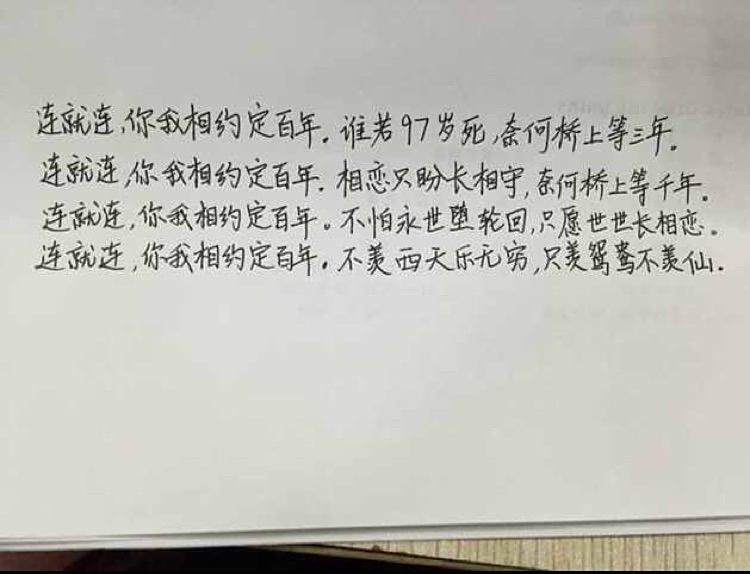 连就连,你我相约定百年。谁若97岁死,奈何桥上等三年。
连就连,你我相约定百年。相恋只盼长相守,奈何桥上等千年。
连就连,你我相约定百年。不怕永世堕轮回,只愿世世长相恋。
连就连,你我相约定百年。不羡西天乐无穷,只羡鸳鸯不羡仙.